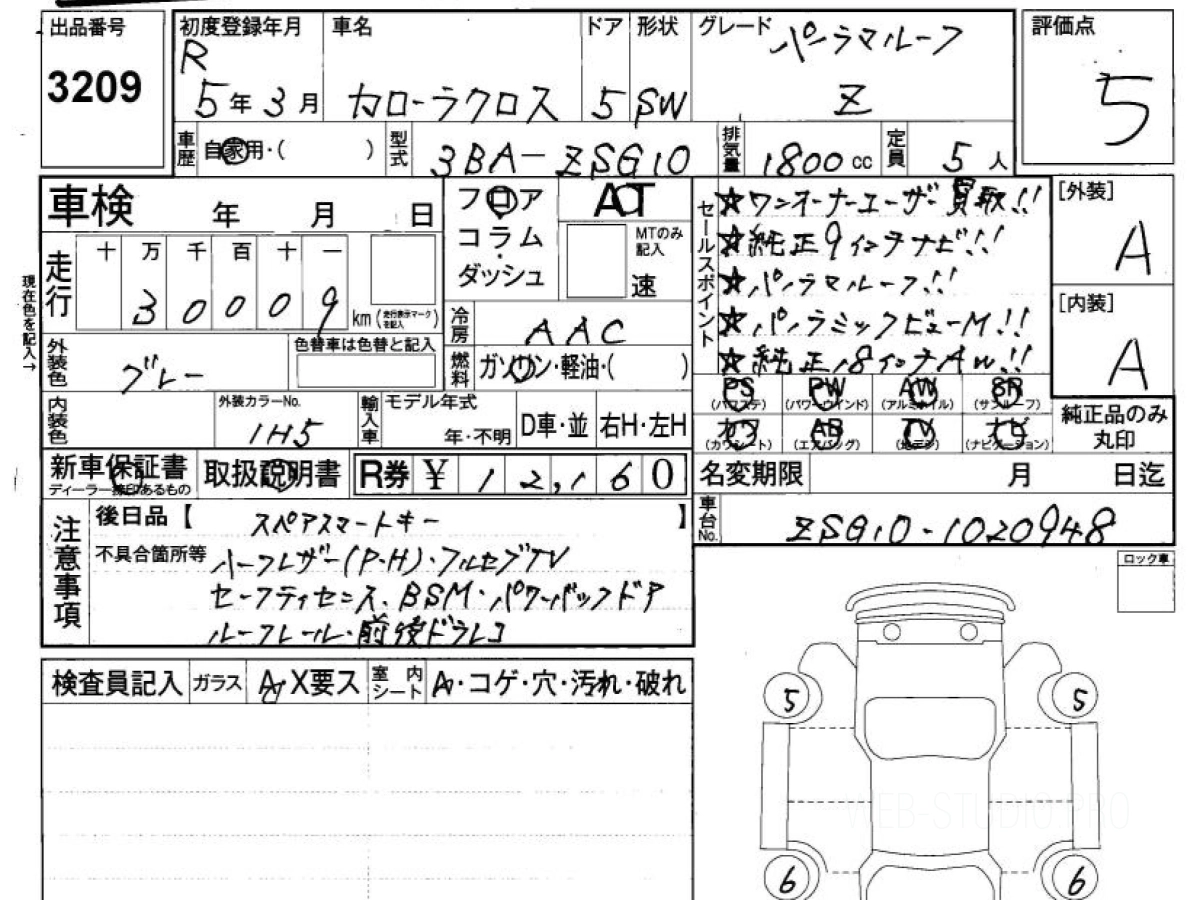 出品番号
3209
初度登録年月
R
5年3月
車名
カローラクロス
ドア
5
形状
SW
グレード
パノラマルーフ
Z
評価点
5
車歴
自家用・( )
型式
3BA-ZSG10
排気量
1800 cc
定員
5人
車検 年 月 日
フロア
コラム
ダッシュ
AT
MTのみ
記入
速
セールスポイント
☆ワンオーナーユーザー買取!!
☆純正9インチナビ!!
☆パノラマルーフ!!
☆パノラミックビューM!!
☆純正18インチAW!!
[外装]
A
[内装]
A
現在色を記入→
走行
十 万 千 百 十 一
3 0 0 0 9
km (走行表示マークを記入)
冷房
AAC
外装色
グレー
色替車は色替と記入
燃料
ガソリン・軽油・( )
PS
(パワステ)
PW
(パワーウインド)
AW
(アルミホイル)
SR
(サンルーフ)
カワ
(カワシート)
AB
(エアバッグ)
TV
(地デジ)
ナビ
(ナビゲーション)
純正品のみ
丸印
内装色
外装カラーNo.
1H5
輸入車
モデル年式
年・不明
D車・並
右H・左H
新車保証書
ディーラー捺印あるもの
取扱説明書
R券 ¥ 12,160
名変期限 月 日迄
注意事項
後日品【 スペアスマートキー 】
車台No.
ZSG10-1020948
不具合箇所等
ハーフレザー(P.H)・フルセグTV
セーフティセンス、BSM・パワーバックドア
ルーフレール・前後ドラレコ
ロック車
検査員記入
ガラス
A・X要ス
室内シート
A・コゲ・穴・汚れ・破れ
5
5
WEB-STUDIO.PRO
6
6